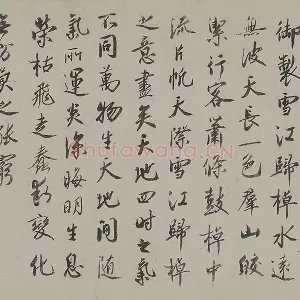 御製雪江歸棹水遠
無波天長一色羣山皎
潔行客蕭條鼓棹中
流片帆天際雪江歸棹
之意盡矣天地四時之氣
不同萬物生天地間隨
氣所運炎涼晦明生息
榮枯飛走蠢動變化
無方莫之能窮